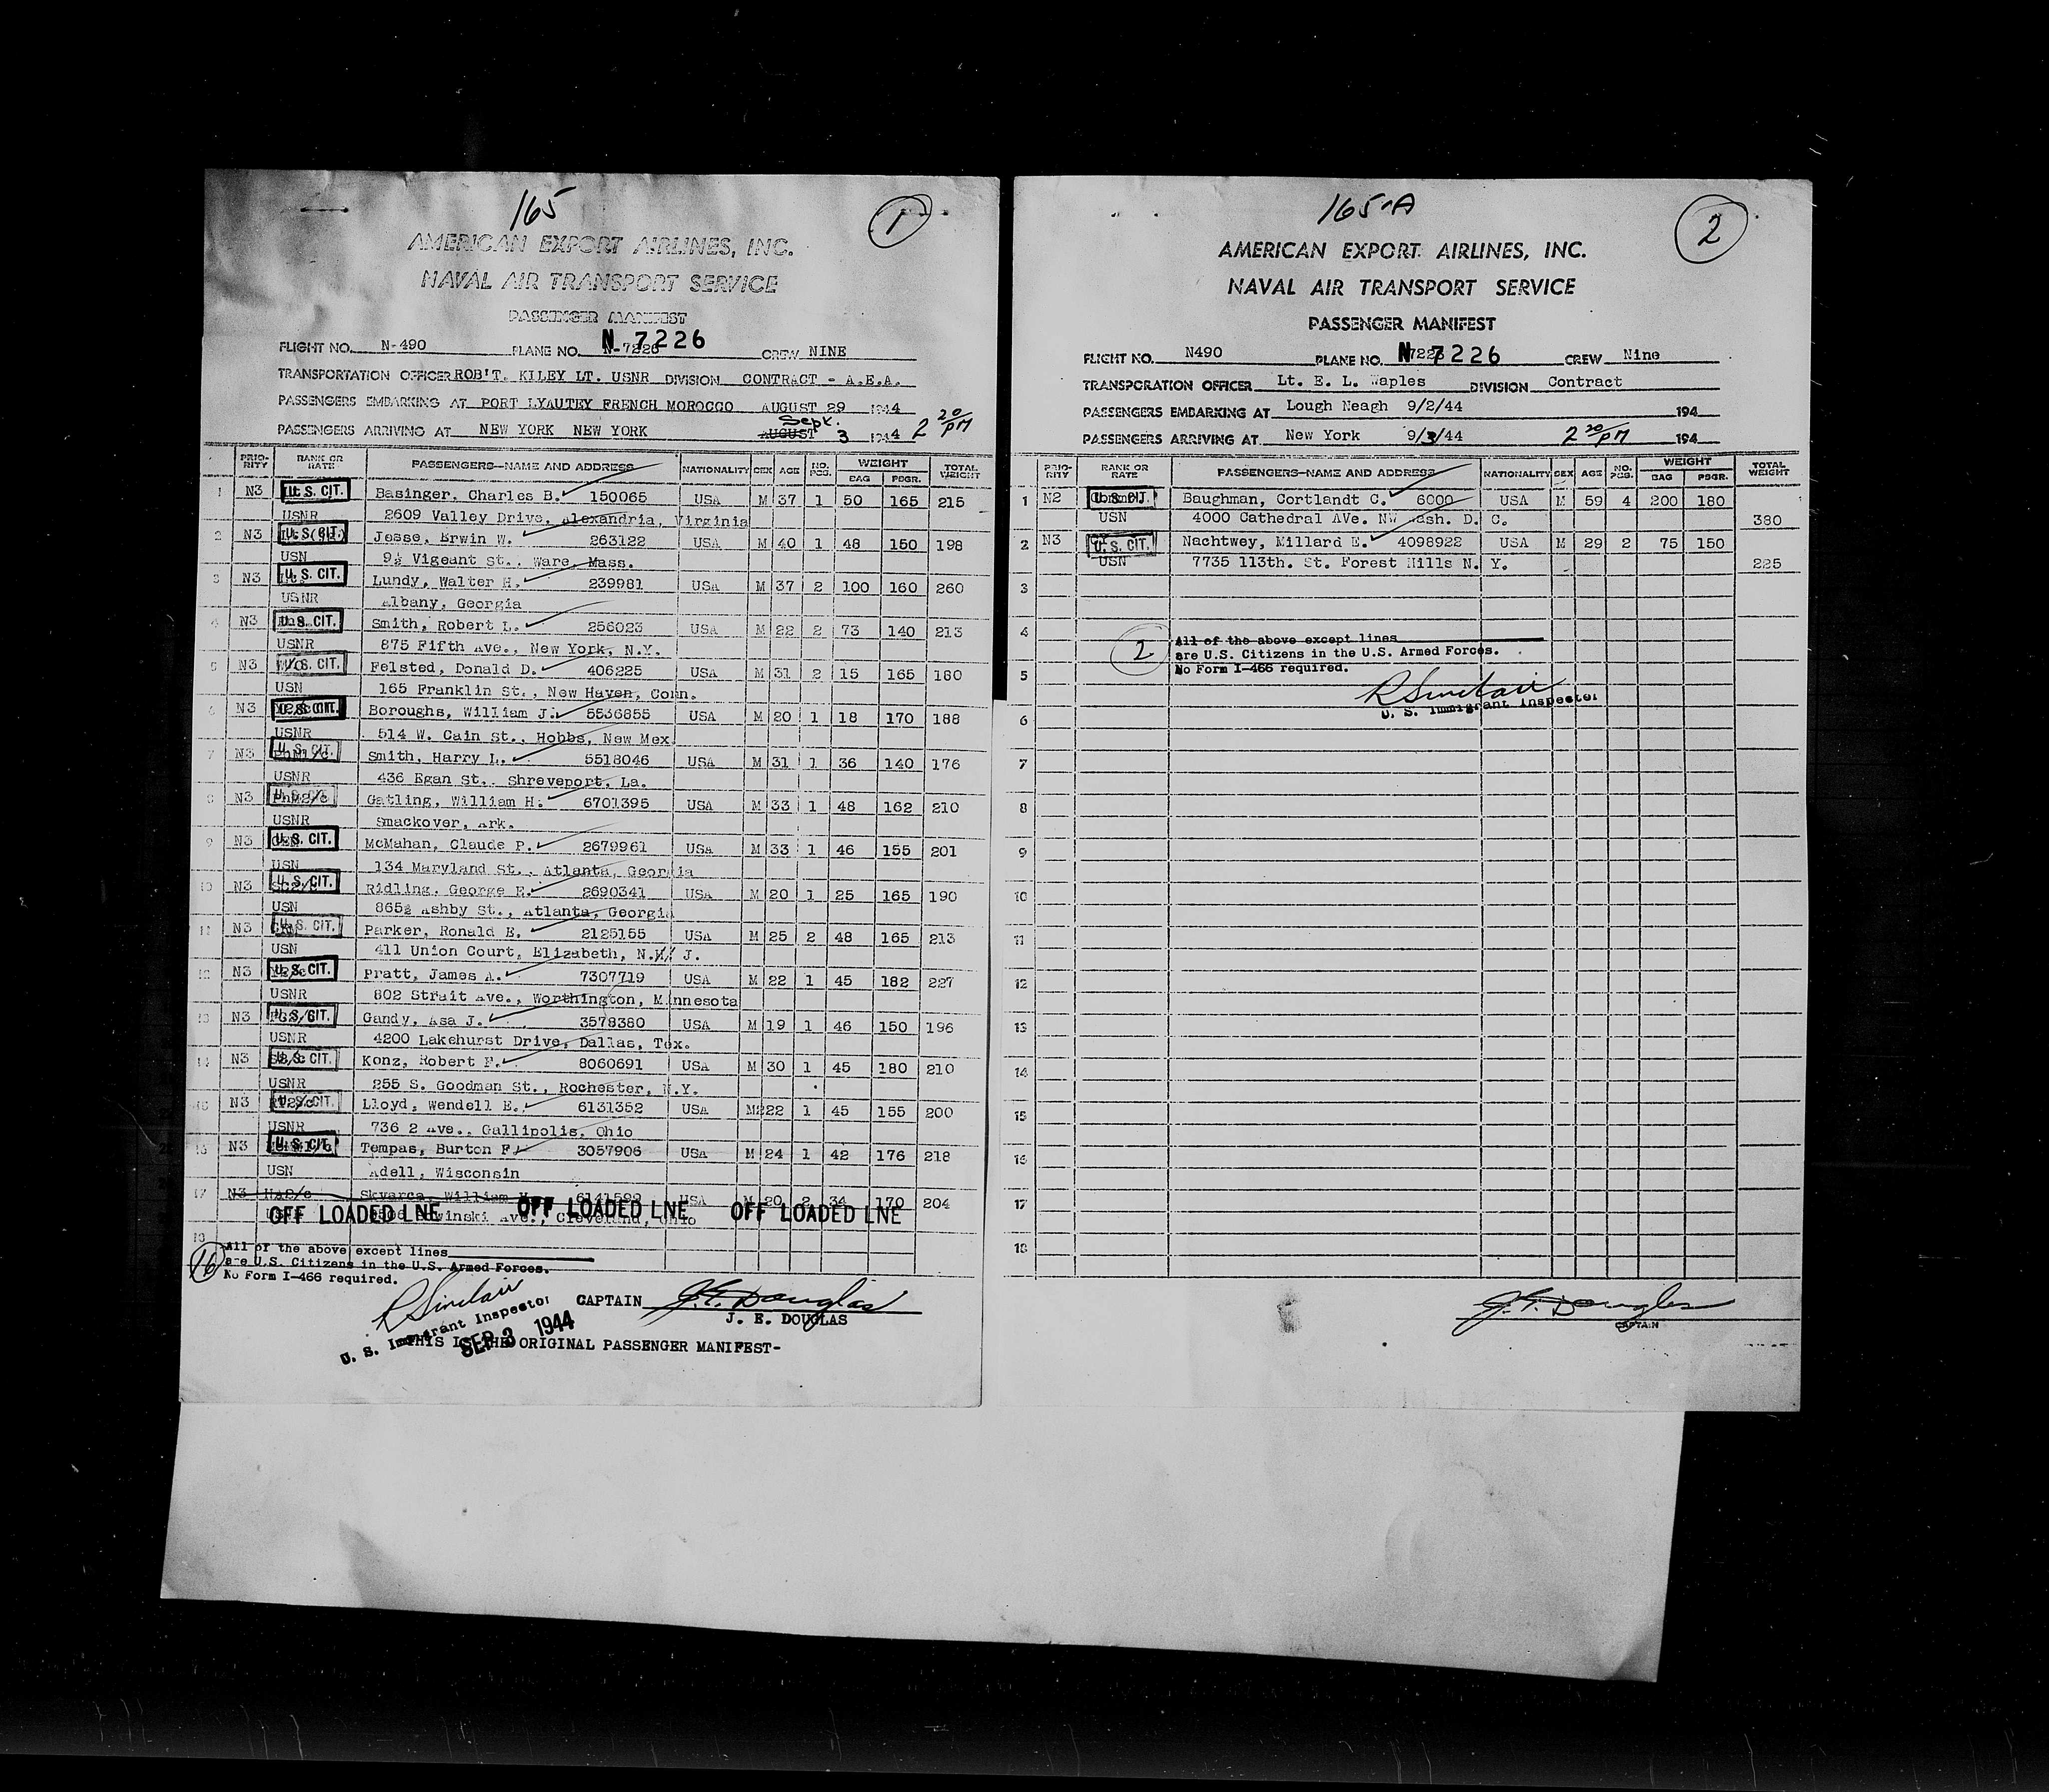 165
1
AMERICAN EXPORT AIRLINES, INC.
NAVAL AIR TRANSPORT SERVICE
PASSENGER MANIFEST
N 7226
FLIGHT NO. N-490 PLANE NO. N-7226 CREW NINE
TRANSPORTATION OFFICER ROB'T. KILEY LT. USNR DIVISION CONTRACT - A.E.A.
PASSENGERS EMBARKING AT PORT LYAUTEY FRENCH MOROCCO AUGUST 29 1944
Sept.
PASSENGERS ARRIVING AT NEW YORK NEW YORK AUGUST 3 1944 2 20/PM
PRIORITY RANK OR RATE PASSENGERS—NAME AND ADDRESS NATIONALITY SEX AGE NO. PCS. WEIGHT BAG PSGR. TOTAL WEIGHT
1 N3 U. S. CIT. Basinger, Charles B. 150065 USA M 37 1 50 165 215
USNR 2609 Valley Drive, Alexandria, Virginia
2 N3 U. S. CIT. Jesse, Erwin W. 263122 USA M 40 1 48 150 198
USN 9½ Vigeant St., Ware, Mass.
3 N3 U. S. CIT. Lundy, Walter H. 239981 USA M 37 2 100 160 260
USNR Albany, Georgia
4 N3 U. S. CIT. Smith, Robert L. 256023 USA M 22 2 73 140 213
USNR 875 Fifth Ave., New York, N.Y.
5 N3 U. S. CIT. Felsted, Donald D. 406225 USA M 31 2 15 165 180
USN 165 Franklin St., New Haven, Conn.
6 N3 U. S. CIT. Boroughs, William J. 5536855 USA M 20 1 18 170 188
USNR 514 W. Cain St., Hobbs, New Mex
7 N3 U. S. CIT. Smith, Harry L. 5518046 USA M 31 1 36 140 176
USNR 436 Egan St., Shreveport, La.
8 N3 PhM2/c Gatling, William H. 6701395 USA M 33 1 48 162 210
USNR Smackover, Ark.
9 N3 U. S. CIT. McMahan, Claude P. 2679961 USA M 33 1 46 155 201
USN 134 Maryland St., Atlanta, Georgia
10 N3 U. S. CIT. Ridling, George E. 2690341 USA M 20 1 25 165 190
USN 865½ Ashby St., Atlanta, Georgia
11 N3 U. S. CIT. Parker, Ronald E. 2125155 USA M 25 2 48 165 213
USN 411 Union Court, Elizabeth, N. J.
12 N3 U. S. CIT. Pratt, James A. 7307719 USA M 22 1 45 182 227
USNR 802 Strait Ave., Worthington, Minnesota
13 N3 U. S. CIT. Gandy, Asa J. 3578380 USA M 19 1 46 150 196
USNR 4200 Lakehurst Drive, Dallas, Tex.
14 N3 U. S. CIT. Konz, Robert F. 8060691 USA M 30 1 45 180 210
USNR 255 S. Goodman St., Rochester, N.Y.
15 N3 U. S. CIT. Lloyd, Wendell E. 6131352 USA M 22 1 45 155 200
USNR 736 2 Ave., Gallipolis, Ohio
16 N3 U. S. CIT. Tempas, Burton F. 3057906 USA M 24 1 42 176 218
USN Adell, Wisconsin
17 N3 Ha2/c Skvarca, William 6141599 USA M 20 2 34 170 204
OFF LOADED LNE OFF LOADED LNE OFF LOADED LNE
Ave., Cleveland, Ohio
18
16 All of the above except lines
are U.S. Citizens in the U.S. Armed Forces.
No Form I-466 required.
R Sinclair
U. S. Immigrant Inspector
SEP 3 1944
CAPTAIN J. E. Douglas
J. E. DOUGLAS
THIS IS THE ORIGINAL PASSENGER MANIFEST-
165-A
2
AMERICAN EXPORT AIRLINES, INC.
NAVAL AIR TRANSPORT SERVICE
PASSENGER MANIFEST
FLIGHT NO. N490 PLANE NO. N 7226 CREW Nine
TRANSPORATION OFFICER Lt. E. L. Waples DIVISION Contract
PASSENGERS EMBARKING AT Lough Neagh 9/2/44 194
PASSENGERS ARRIVING AT New York 9/3/44 2 20/PM 194
PRIORITY RANK OR RATE PASSENGERS—NAME AND ADDRESS NATIONALITY SEX AGE NO. PCS. WEIGHT BAG PSGR. TOTAL WEIGHT
1 N2 U. S. CIT. Baughman, Cortlandt C. 6000 USA M 59 4 200 180
USN 4000 Cathedral AVe. NW Wash. D. C. 380
2 N3 U. S. CIT. Nachtwey, Millard E. 4098922 USA M 29 2 75 150
USN 7735 113th. St. Forest Hills N. Y. 225
3
4
2 All of the above except lines
are U.S. Citizens in the U.S. Armed Forces.
5 No Form I-466 required.
R Sinclair
U. S. Immigrant Inspector
6
7
8
9
10
11
12
13
14
15
16
17
18
J. E. Douglas
CAPTAIN